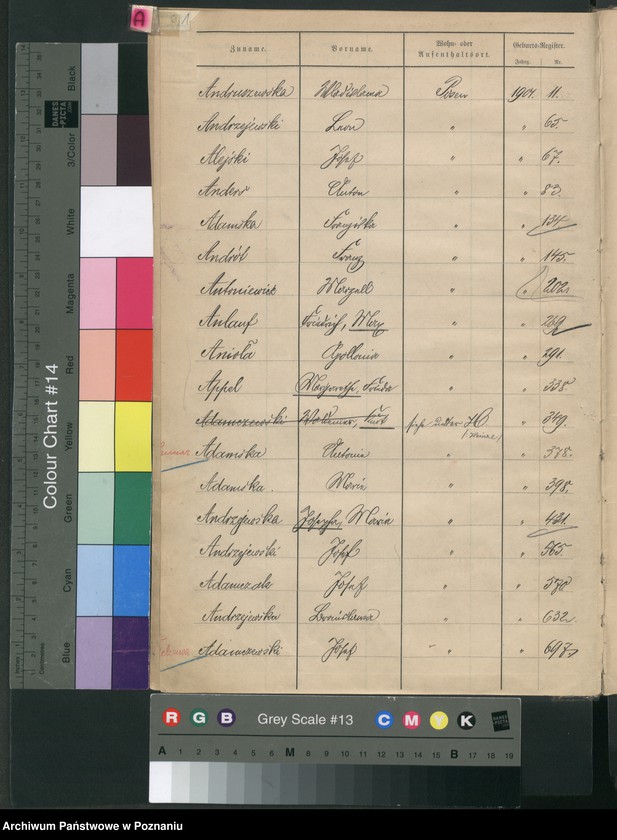 A 21
Zuname. Vorname. Wohn- oder Aufenthaltsort. Geburts-Register.
Jahrg. Nr.
Andruszewska Wladislawa Posen 1904. 11.
Andrzejewski Leon " " 65.
Alejski Josef " " 67.
Anders Anton " " 83.
Adamska Franziska " " 134
Andról Franz " " 145.
Antoniewicz " " 202.
Anlauf Friedrich, Max " " 269
Anioła Apollonia " " 291.
Appel Margarethe, Frieda " " 338.
Adamczewski Woldemar, Kurt siehe unter H " 349.
Adamska Antonie " " 378.
Adamska. Maria " " 398.
Andrzejewska Josepha, Maria " " 421.
Andrzejewski Josef " " 565.
Adamczak Josef " " 570
Andrzejewska Bronislawa " " 632.
Adamczewski Josef " " 697
Colour Chart #14
Black
3/Color
White
Magenta
Red
Yellow
Green
Cyan
Blue
DANES
PICTA
R G B Grey Scale #13 C M Y K
A 1 2 3 4 5 6 M 8 9 10 11 12 13 14 15 B 17 18 19
Archiwum Państwowe w Poznaniu